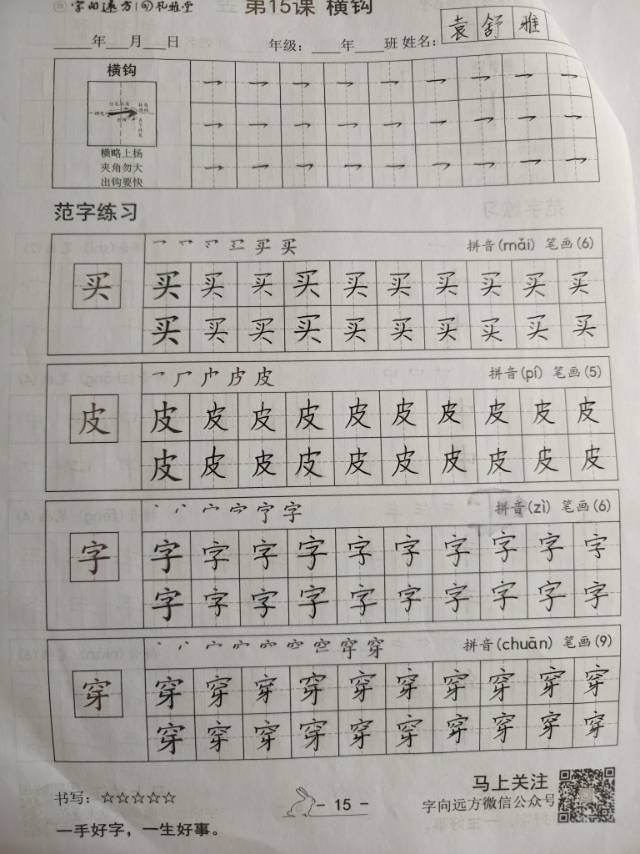 字向远方 礼雅堂 第15课 横钩
____年___月___日 年级：____年____班 姓名：袁舒雅
横钩
横略上扬
夹角勿大
出钩要快
范字练习
买 拼音(mǎi) 笔画(6)
买 买 买 买 买 买 买 买 买 买 买
买 买 买 买 买 买 买 买 买 买
皮 拼音(pí) 笔画(5)
皮 皮 皮 皮 皮 皮 皮 皮 皮 皮 皮
皮 皮 皮 皮 皮 皮 皮 皮 皮 皮
字 拼音(zì) 笔画(6)
字 字 字 字 字 字 字 字 字 字 字
字 字 字 字 字 字 字 字 字 字
穿 拼音(chuān) 笔画(9)
穿 穿 穿 穿 穿 穿 穿 穿 穿 穿 穿
穿 穿 穿 穿 穿 穿 穿 穿 穿 穿
书写：☆☆☆☆☆ - 15 - 马上关注
字向远方微信公众号
一手好字，一生好事。